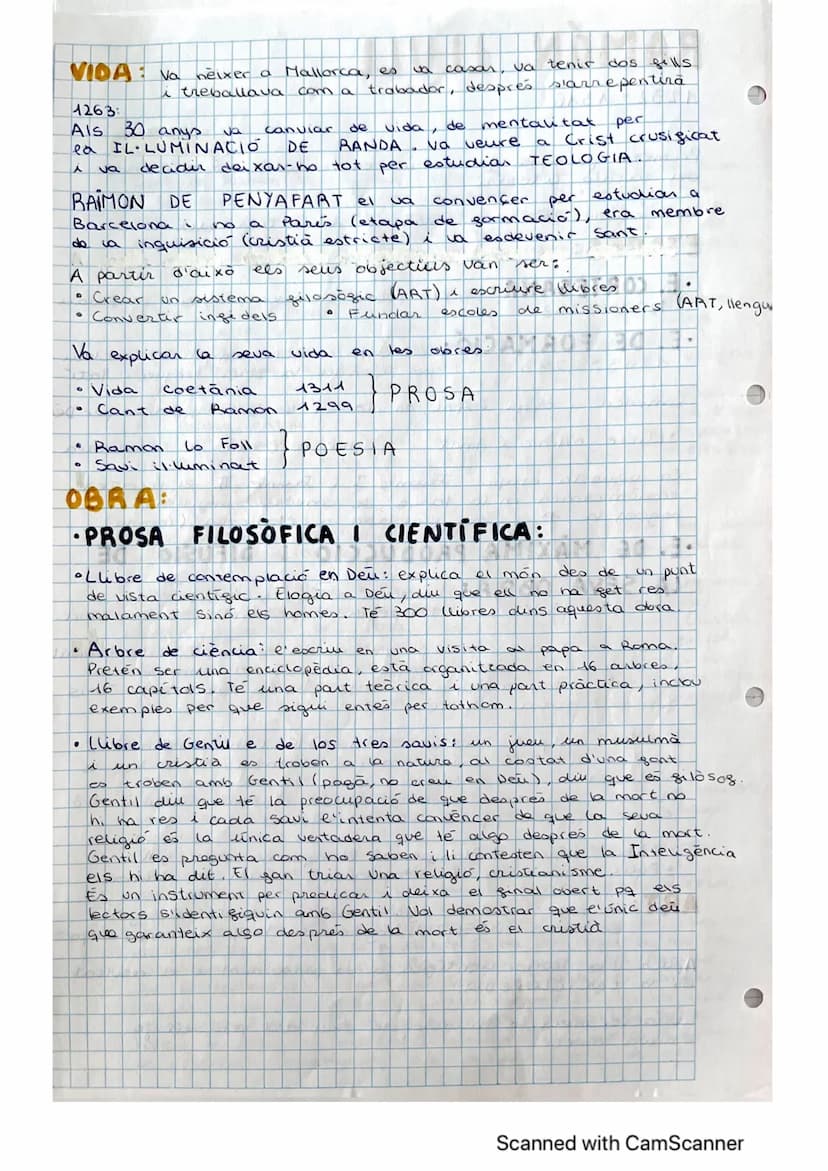 VIDA: Va nèixer a Mallorca, es va casar, va tenir dos fills
i treballava com a trobador, després s'arrepentirà
1263:
Als 30 anys va canviar de vida, de mentalitat per
la IL·LUMINACIÓ DE RANDA. Va veure a Crist crusificat
i va decidir deixar-ho tot per estudiar TEOLOGIA.
RAIMON DE PENYAFART el va convençer per estudiar a
Barcelona i no a París (etapa de formació), era membre
de la inquisició (cristià estricte) i va esdevenir Sant.
A partir d'això els seus objectius van ser:
• Crear un sistema filosògic (ART) i escriure llibres
• Convertir infidels • Fundar escoles de missioners (ART, llengu
Va explicar la seva vida en les obres
• Vida coetània 1311 } PROSA
• Cant de Ramon 1299
• Ramon lo Foll } POESIA
• Savi il·luminat
OBRA:
·PROSA FILOSÒFICA I CIENTÍFICA:
•Llibre de contemplació en Déu: explica el món des de un punt
de vista científic. Elogia a Déu, diu que ell no ha fet res
malament sinó els homes. Té 300 llibres dins aquesta obra.
• Arbre de ciència: l'escriu en una visita al papa a Roma.
Pretén ser una enciclopèdia, està organitzada en 16 arbres,
16 capítols. Té una part teòrica i una part pràctica, inclou
exemples per que sigui entés per tothom.
• Llibre de Gentil e de los tres savis: un jueu, un musulmà
i un cristià es troben a la natura, al costat d'una font
es troben amb Gentil (pagà, no creu en Déu), diu que és filòsof.
Gentil diu que té la preocupació de que després de la mort no
hi ha res i cada savi l'intenta convèncer de que la seva
religió és la única vertadera que té algo després de la mort.
Gentil es pregunta com ho saben i li contesten que la Inteligència
els hi ha dit. El fan triar una religió, cristianisme.
És un instrument per predicar i deixa el final obert pq els
lectors s'identifiquin amb Gentil. Vol demostrar que l'únic déu
que garanteix algo després de la mort és el cristià
Scanned with CamScanner